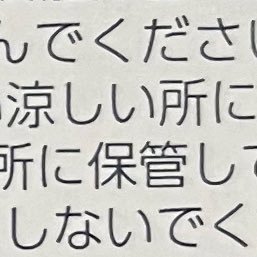 んでください
い涼しい所に
所に保管して
しないでく